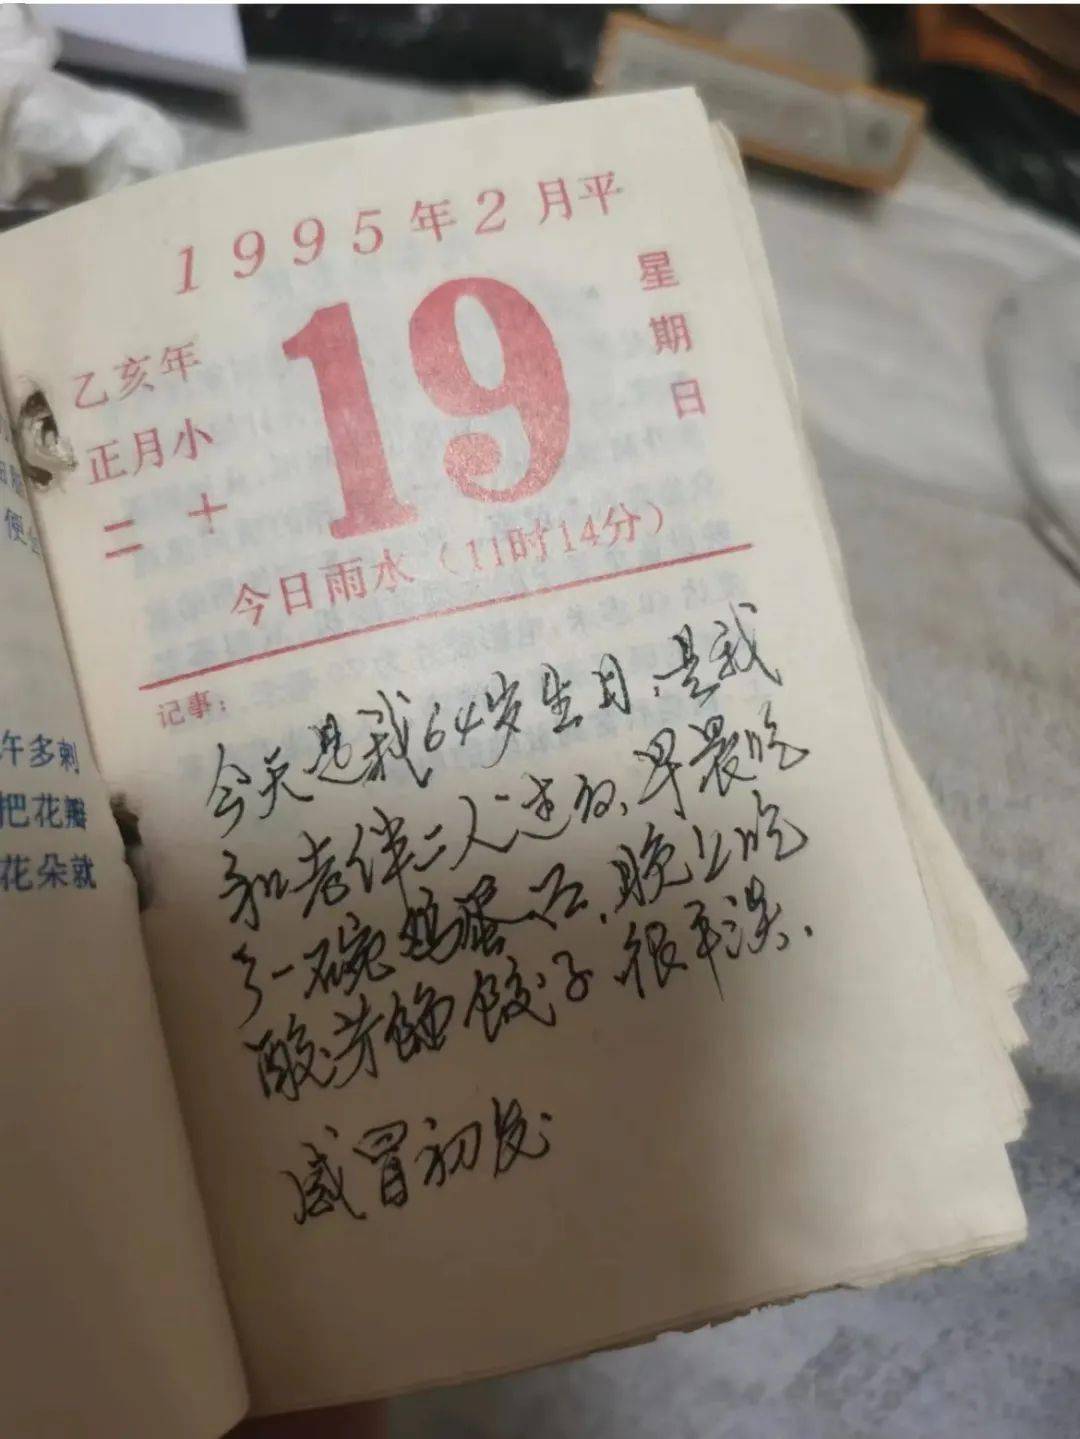 1995年2月平
19
星期日
乙亥年
正月小
二十
今日雨水（11时14分）
记事：
今天是我64岁生日，是我
和老伴二人过的、早晨吃
了一碗鸡蛋、晚上吃
酸芳馅饺子、很平淡、
感冒初发
便
午多刺
把花瓣
花朵就